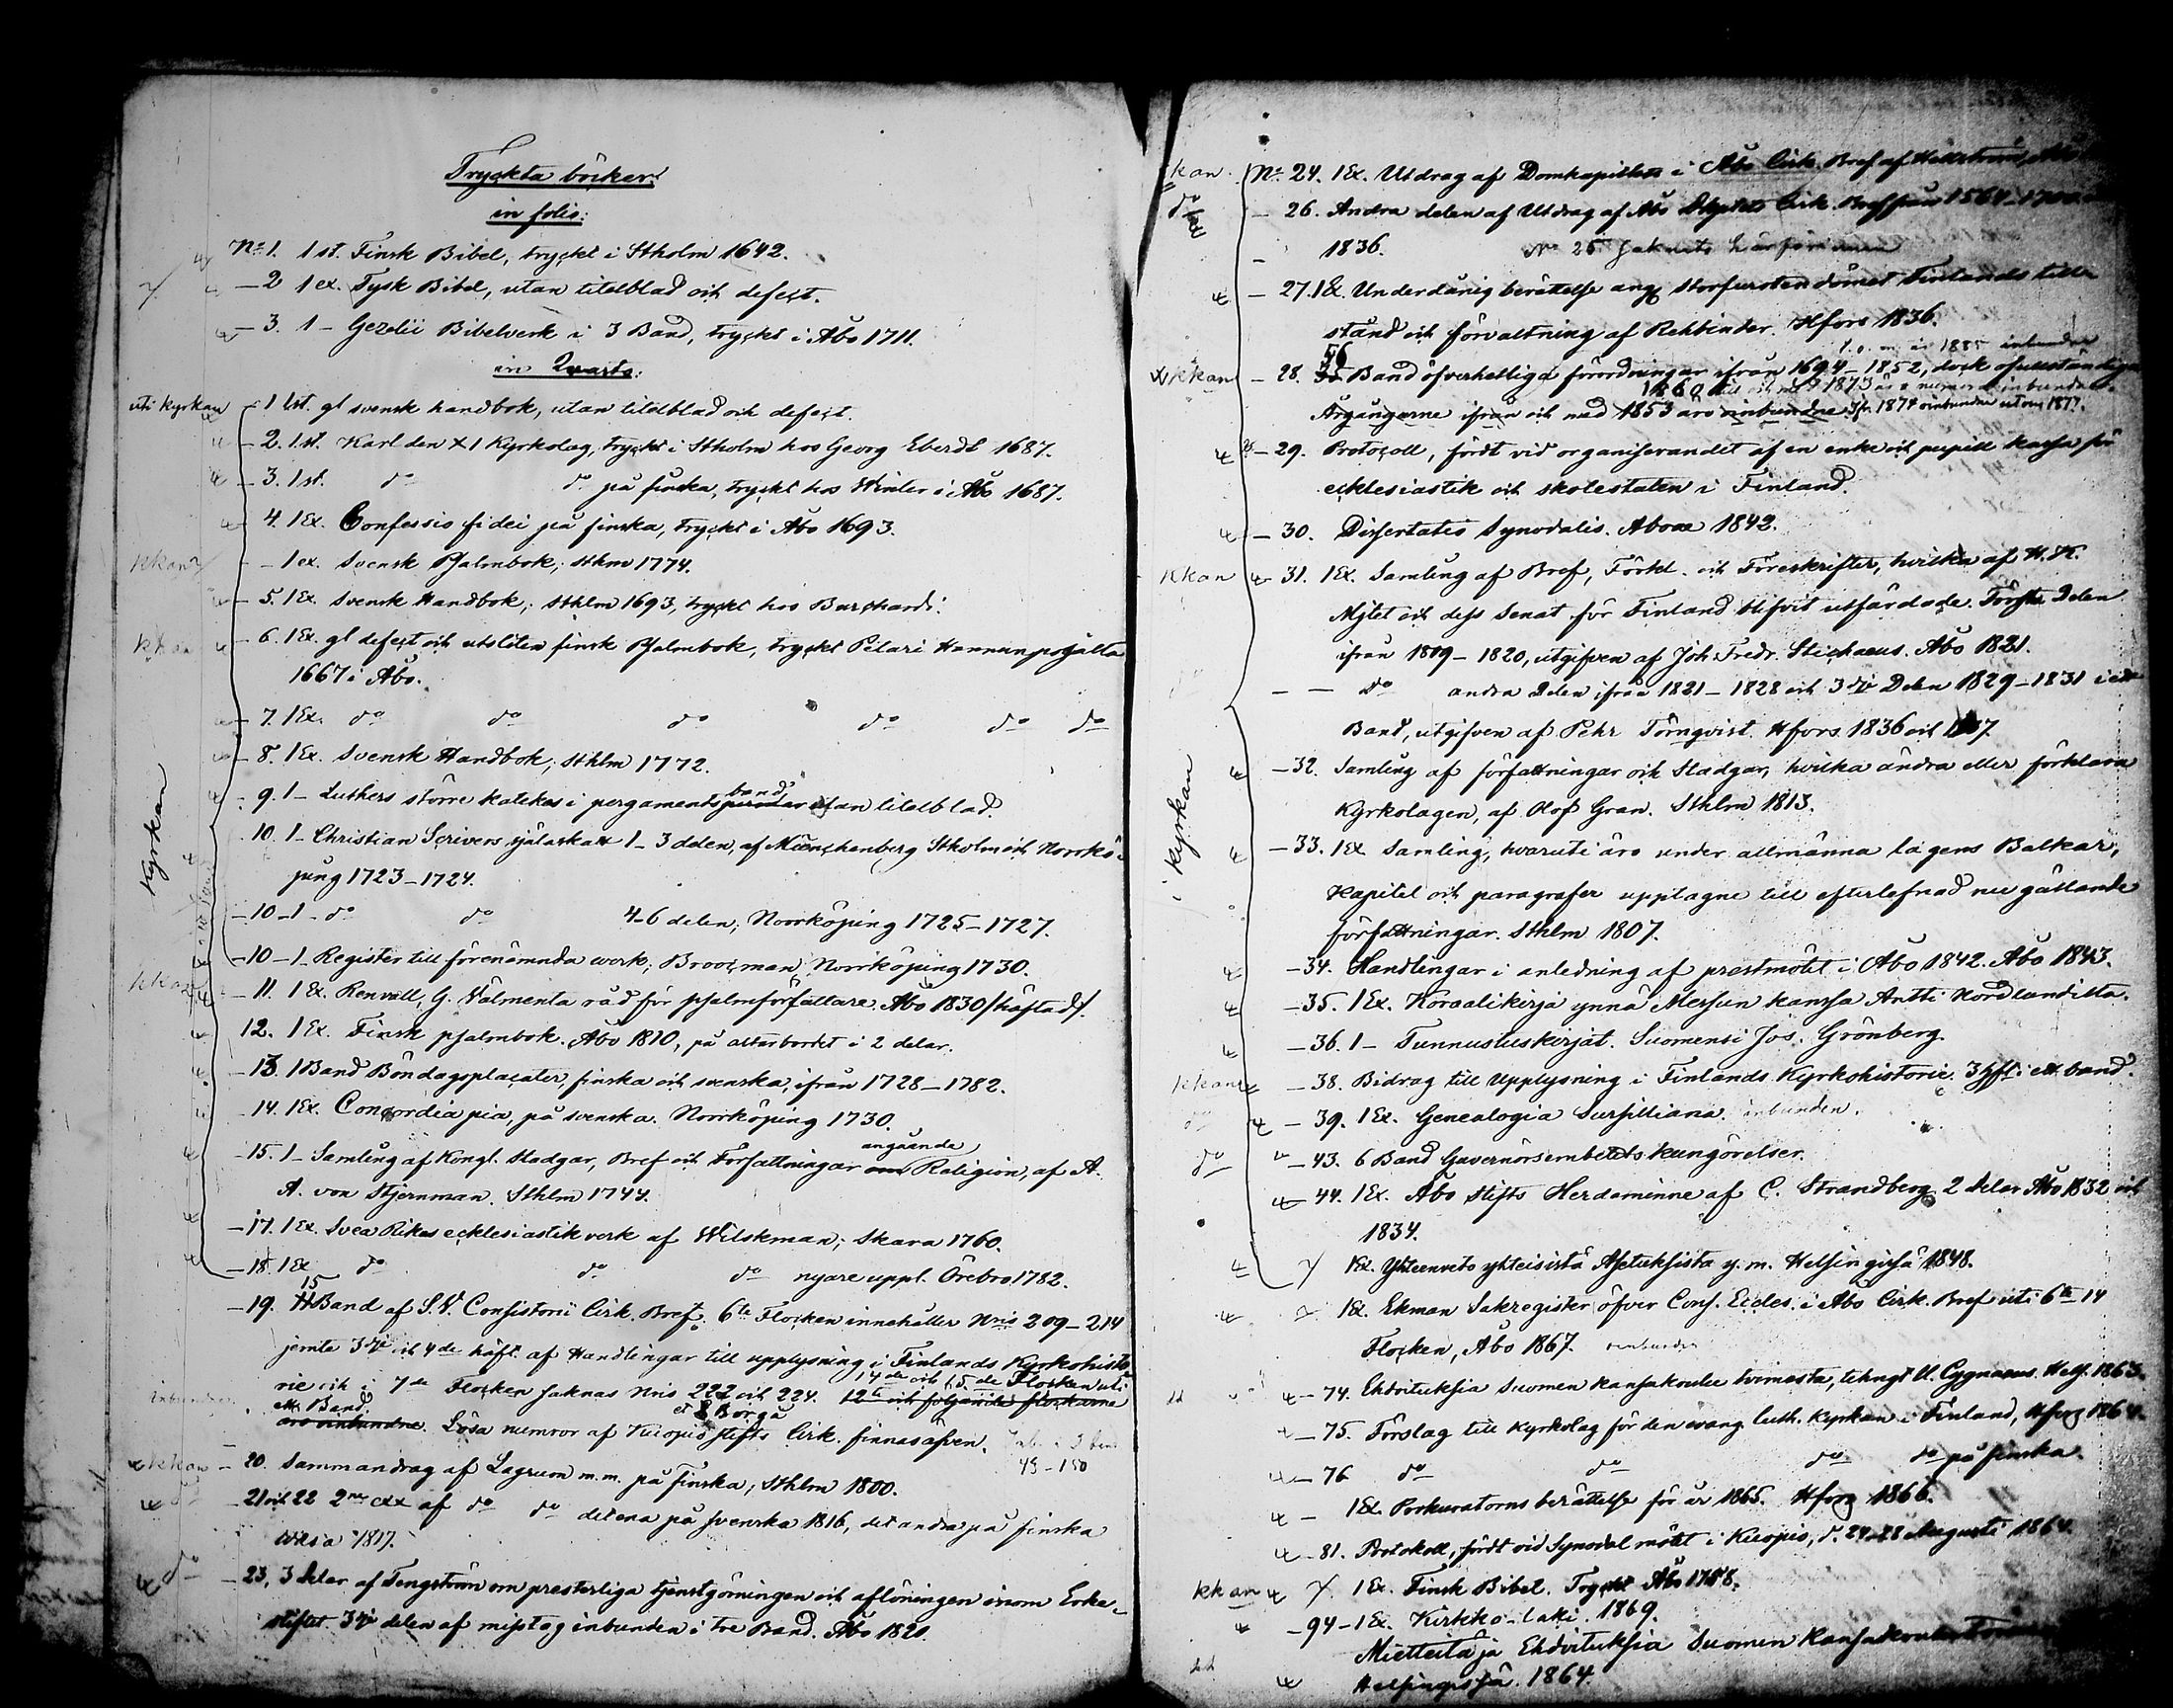 Tryckta böcker
in folio:
No 1. 1 st. Finsk Bibel, tryckt i Stholm 1642.
— 2 1 ex. Tysk Bibel, utan titelblad och defect.
— 3. 1 — Gezelii Bibelverk i 3 Band, tryckt i Åbo 1711.
in Quarto:
uti kyrkan — 1 1st. gl svensk handbok, utan titelblad och defect.
— 2. 1 st. Karl den XI Kyrkolag, tryckt i Stholm hos Georg Eberdt 1687.
— 3. 1 st. do do på finska, tryckt hos Winter i Åbo 1687.
4. 1 Ex. Confessio fidei på finska, tryckt i Åbo 1693.
kkan — 1 ex. Svensk Psalmbok, Sthm 1774.
— 5. 1 Ex. Svensk Handbok; Sthlm 1693, tryckt hos Burchardi.
kkan — 6. 1 Ex. gl defect och utsliten finsk Psalmbok, tryckt Petari Hannunpojalta
1667 i Åbo.
— 7. 1 Ex. do do do do do do
— 8. 1 Ex. Svensk Handbok; Sthlm 1772.
band
9. 1 — Luthers större katekes i pergaments utan titelblad.
Kyrkan
10. 1 — Christian Scrivers själaskatt 1 — 3 delen, af Münchenberg Stholm och Norrkö-
ping 1723 — 1724.
— 10 — 1 — do do 4-6 delen; Norrköping 1725 — 1727.
— 10 — 1 — Register till förenämnda verk; Brooman, Norrköping 1730.
kkan — 11. 1 Ex. Renvall, G. Välmenta råd för psalmförfattare. Åbo 1830 /häftad/.
12. 1 Ex. Finsk psalmbok. Åbo 1810, på altarbordet i 2 delar.
— 13. 1 Band Böndagsplacater, finska och svenska, ifrån 1728 — 1782.
— 14. 1 Ex. Concordia pia, på svenska. Norrköping 1730.
angående
— 15. 1 — Samling af Kongl. Stadgar, Bref och Författningar om Religion, af A.
A. von Stjernman. Sthlm 1744.
— 17. 1 Ex. Svea Rikes ecklesiastik verk af Wilskman; Skara 1760.
— 18. 1 Ex do do do nyare uppl. Örebro 1782.
15
— 19. Band af S.V. Consistorii Cirk. Bref. 6te Flocken innehåller Nris 209 — 214
jemte 3dje och 4de häft. af Handlingar till upplysning i Finlands Kyrkohisto
14de och 15de Flocken uti
rie och i 7de Flocken saknas Nris 222 och 224. 12te och följande flockarne
inbunden ett Band. et Borgå
äro inbundne. Lösa numror af Kuopio stifts Cirk. finnas äfven.
kkan — 20. Sammandrag af Lagrum m.m. på finska, Sthlm 1800.
— 21 och 22 2ne ex af do do det ena på svenska 1816, det andra på finska
1817.
do — 23, 3 delar af Tengström om presterliga tjenstgöringen och aflöningen inom Erke-
stiftet 3dje delen af misstag inbunden i tre Band. Åbo 1820.
kkan. No 24. 1 Ex. Utdrag af Domkapitlets i Åbo Cirk. Bref af
do — 26. Andra delen af Utdrag af Åbo Cirk. Bref från 1564 — 1700
1836. No 25
— 27. 1 Ex. Underdånig berättelse ang. Storfurstendömet Finlands till-
stånd och förvaltning af Rehbinder. Hfors 1836.
t.o.m. år 1885 inbundna
56
kkan — 28. Band öfverhetliga förordningar ifrån 1694 — 1852, dock ofullständiga
Årgångarne ifrån och med 1853 äro inbundne.
— 29. Protocoll, fördt vid organiserandet af en enke och pupill kassa för
ecklesiastik och skolestaten i Finland.
— 30. Dissertatio Synodalis. Aboae 1842.
Kkan — 31. 1 Ex. Samling af Bref, Förkl. och Föreskrifter, hvilka af H.K.
Mjtet och dess Senat för Finland blifvit utfärdade. Förste Delen
ifrån 1809 — 1820, utgifven af Joh. Fredr. Stichaeus. Åbo 1821.
do — — do andra Delen ifrån 1821 — 1828 och 3dje Delen 1829 — 1831 i ett
Band, utgifven af Pehr Törnqvist. Hfors 1836 och
— 32. Samling af författningar och Stadgar, hvilka ändra eller förklara
Kyrkolagen, af Olof Gran. Sthlm 1813.
i Kyrkan
— 33. 1 Ex Samling, hvaruti äro under allmänna lagens Balkar,
Kapitel och paragrafer upptagne till efterlefnad nu gällande
författningar. Sthlm 1807.
— 34. Handlingar i anledning af prestmötet i Åbo 1842. Åbo 1843.
— 35. 1 Ex. Koraalikirja ynnä Messun kanssa Antti Nordlundilta.
— 36. 1 — Tunnustuskirjat. Suomensi Jos. Grönberg.
kkan — 38. Bidrag till Upplysning i Finlands Kyrkohistorie. 3 hft. i ett band.
do — 39. 1 Ex. Genealogia Sursilliana. inbunden.
do — 43. 6 Band Guvernörsembetets kungörelser.
— 44. 1 Ex. Åbo Stifts Herdaminne af C. Strandberg 2 delar Åbo 1832 och
1834.
1 Ex. Yhteenveto yhteisistä Asetuksista y.m. Helsingissä 1848.
1 Ex. Ekman Sakregister öfver Cons. Eccles. i Åbo Cirk. Bref uti 6te — 14
Flocken, Åbo 1867. oinbunden
— 74. Ehdoituksia Suomen kansakoulu toimesta, tehnyt U. Cygnaeus. Hels. 1863.
— 75. Förslag till Kyrkolag för den evang. luth. Kyrkan i Finland, Hfors 1864.
— 76 do do do do på finska.
— 1 Ex. Prokuratorns berättelse för år 1865. Hfors 1866.
— 81. Protokoll, fördt vid Synodal mötet i Kuopio, d. 24-28 Augusti 1864.
kkan 1 Ex. Finsk Bibel. Tryckt Åbo
— 94 — 1 Ex. Kirkko-laki. 1869.
Mietteitä ja Ehdoituksia Suomen Kansakoulu
Helsingissä. 1864.